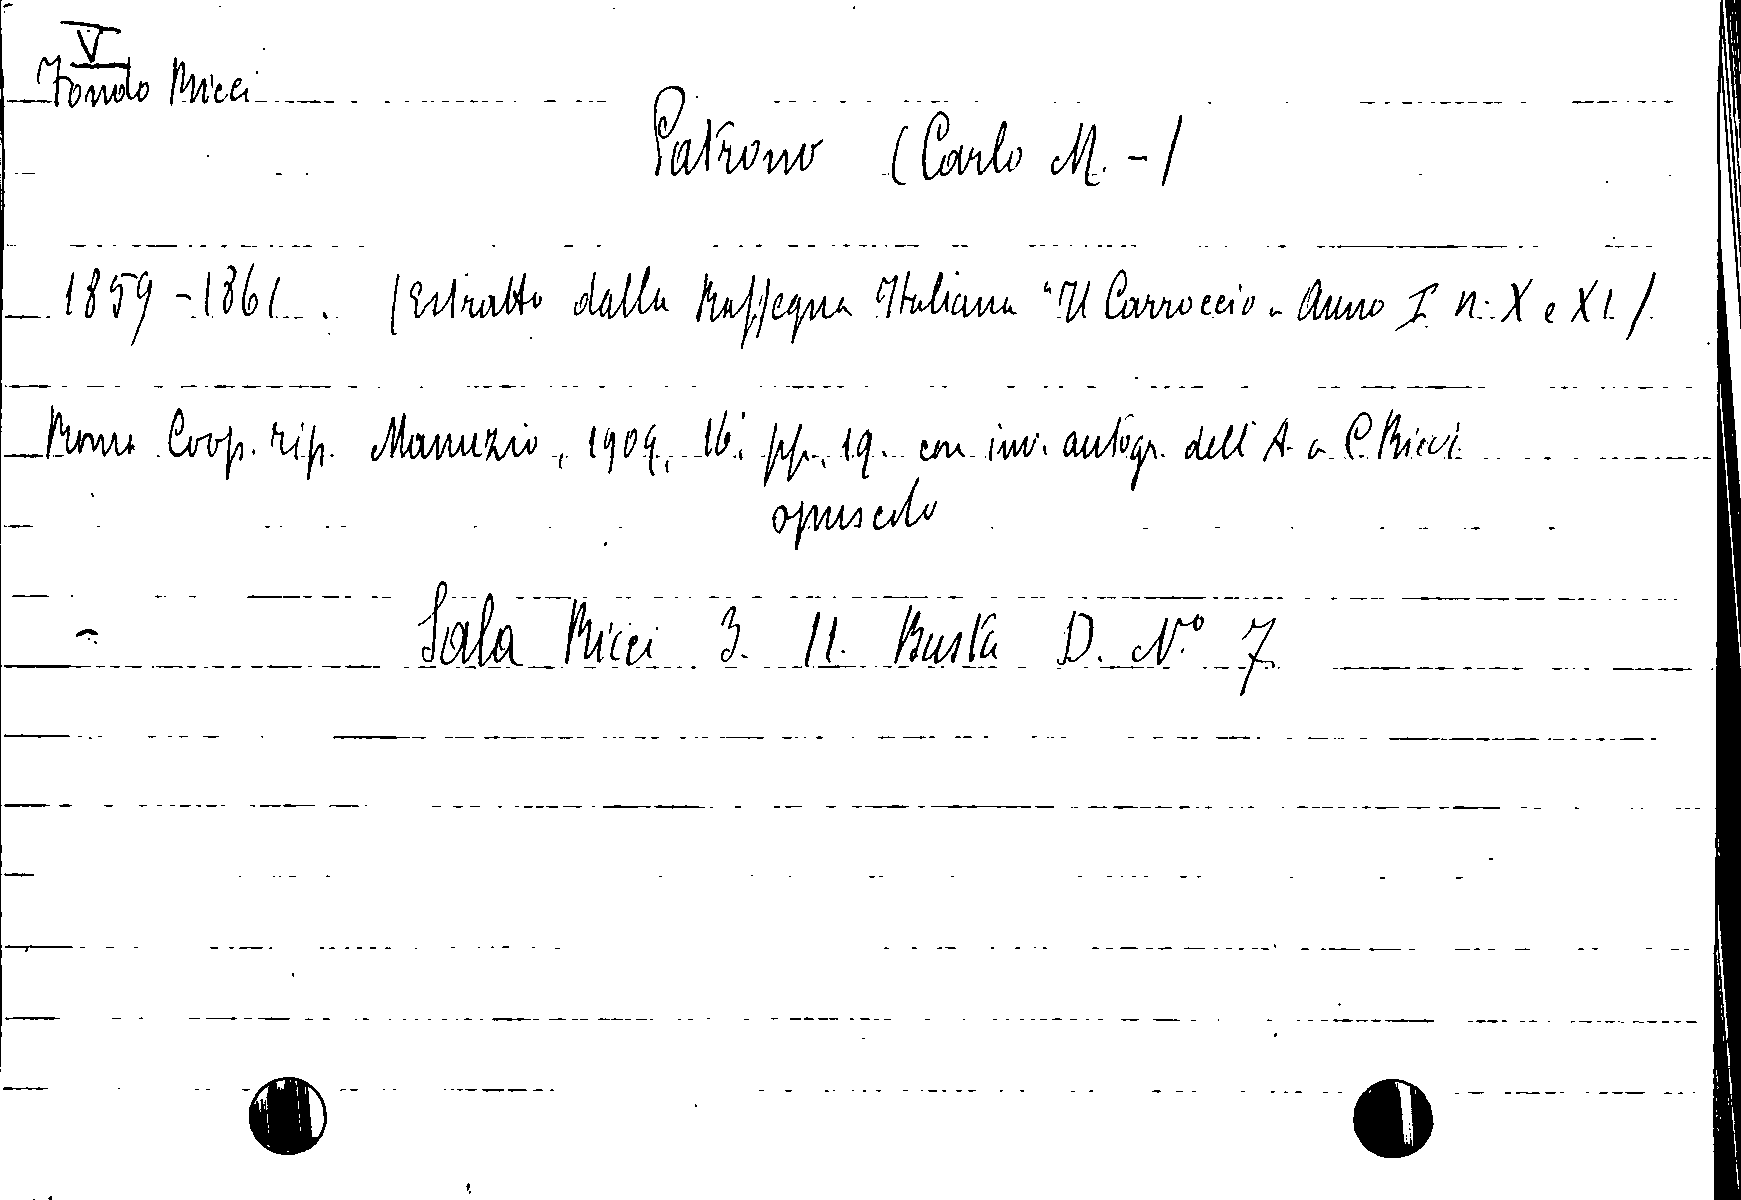 V
Fondo Ricci
Patrono (Carlo M. -)
1859-1861. (Estratto dalla Rassegna Italiana "Il Carroccio" Anno I n. X e XI.)
Roma Coop. tip. Manuzio, 1909, 16; pp. 19. con inv. autogr. dell'A. a C. Ricci
opuscolo
Sala Ricci 3. 11. Busta D. N.º 7